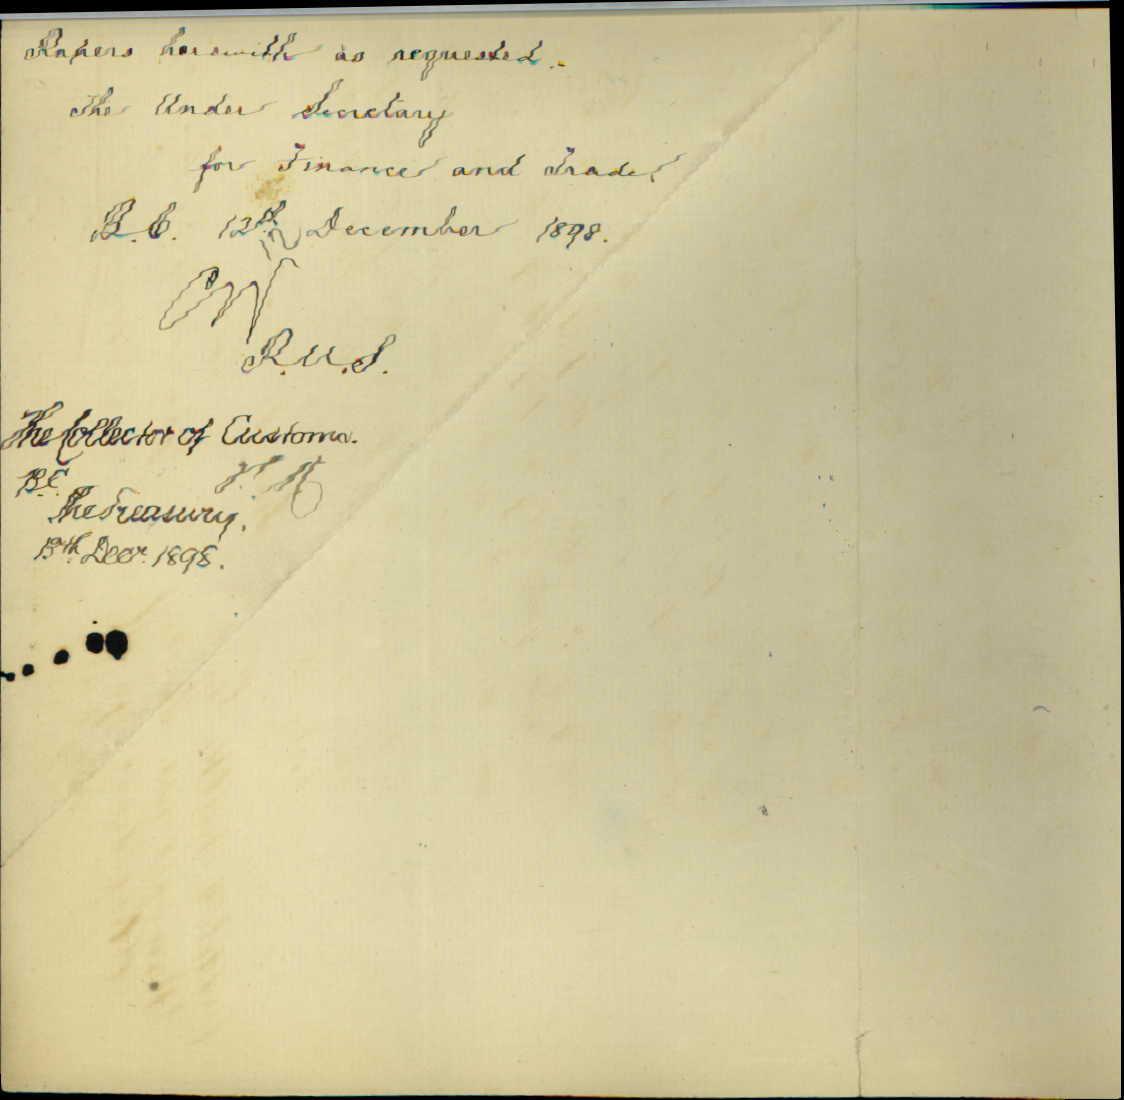 Papers herewith as requested.
The Under Secretary
for Finance and Trade,
B.C. 12th December 1898.
P.U.S.
The Collector of Customs.
B.C.
The Treasury.
13th Decr. 1898.